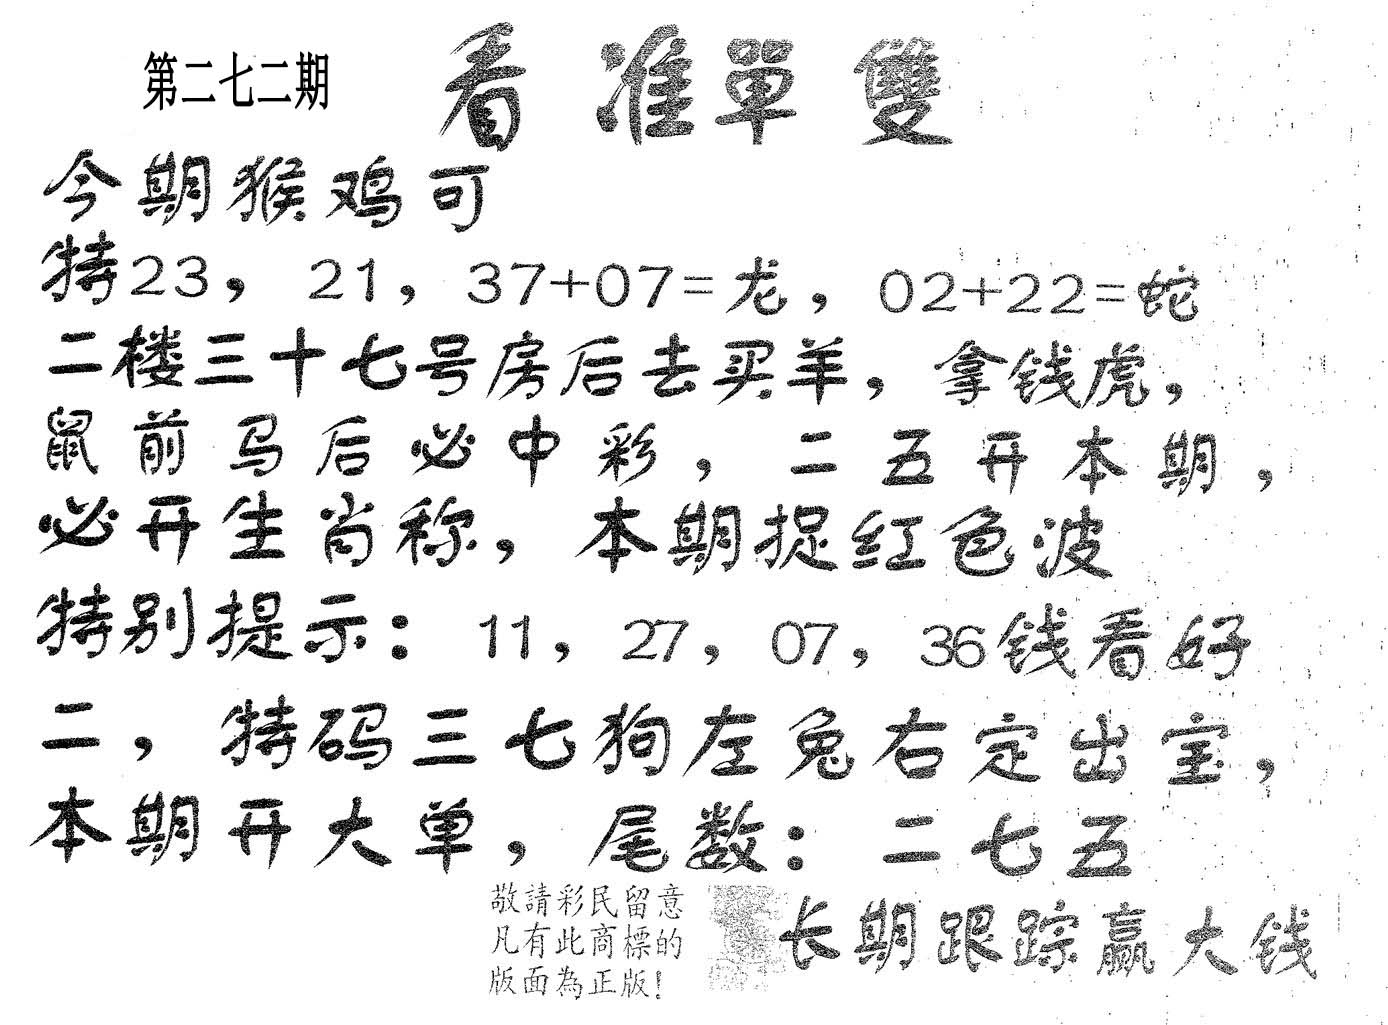 第二七二期
看准單雙
今期猴鸡可
特23，21，37+07=龙，02+22=蛇
二楼三十七号房后去买羊，拿钱虎，
鼠前马后必中彩，二五开本期，
必开生肖称，本期捉红色波
特别提示：11，27，07，36钱看好
二，特码三七狗左兔右定出宝，
本期开大单，尾数：二七五
敬請彩民留意
凡有此商標的
版面為正版！
长期跟踪赢大钱